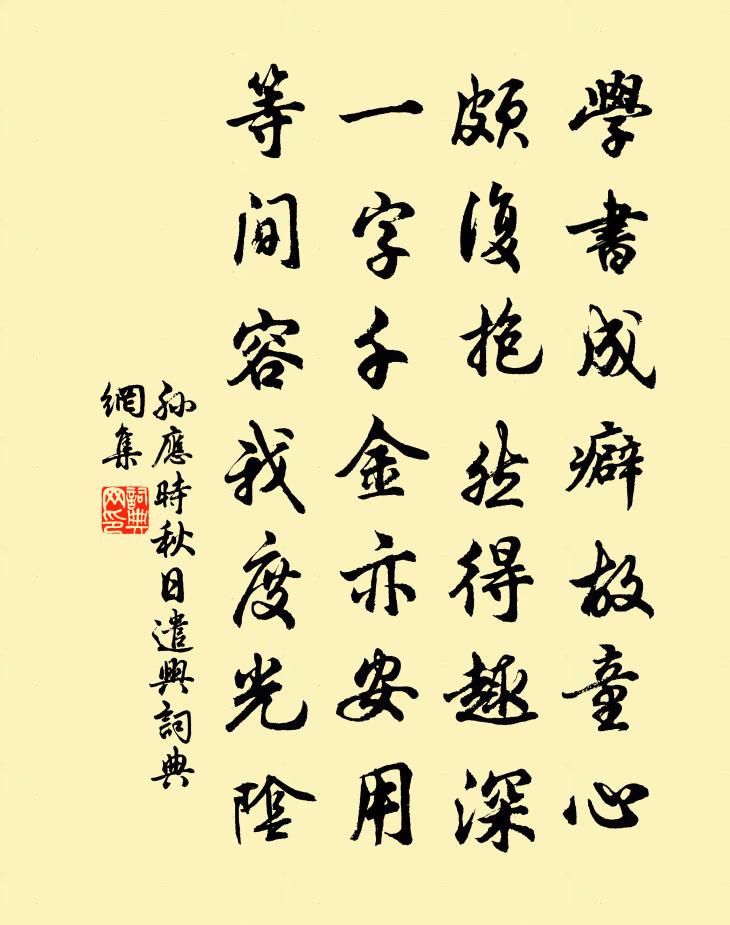 學書成癖故童心
頗復抱然得趣深
一字千金亦安用
等閒容我度光陰
孫應時秋日遣興詞典
網集
詞典
网印